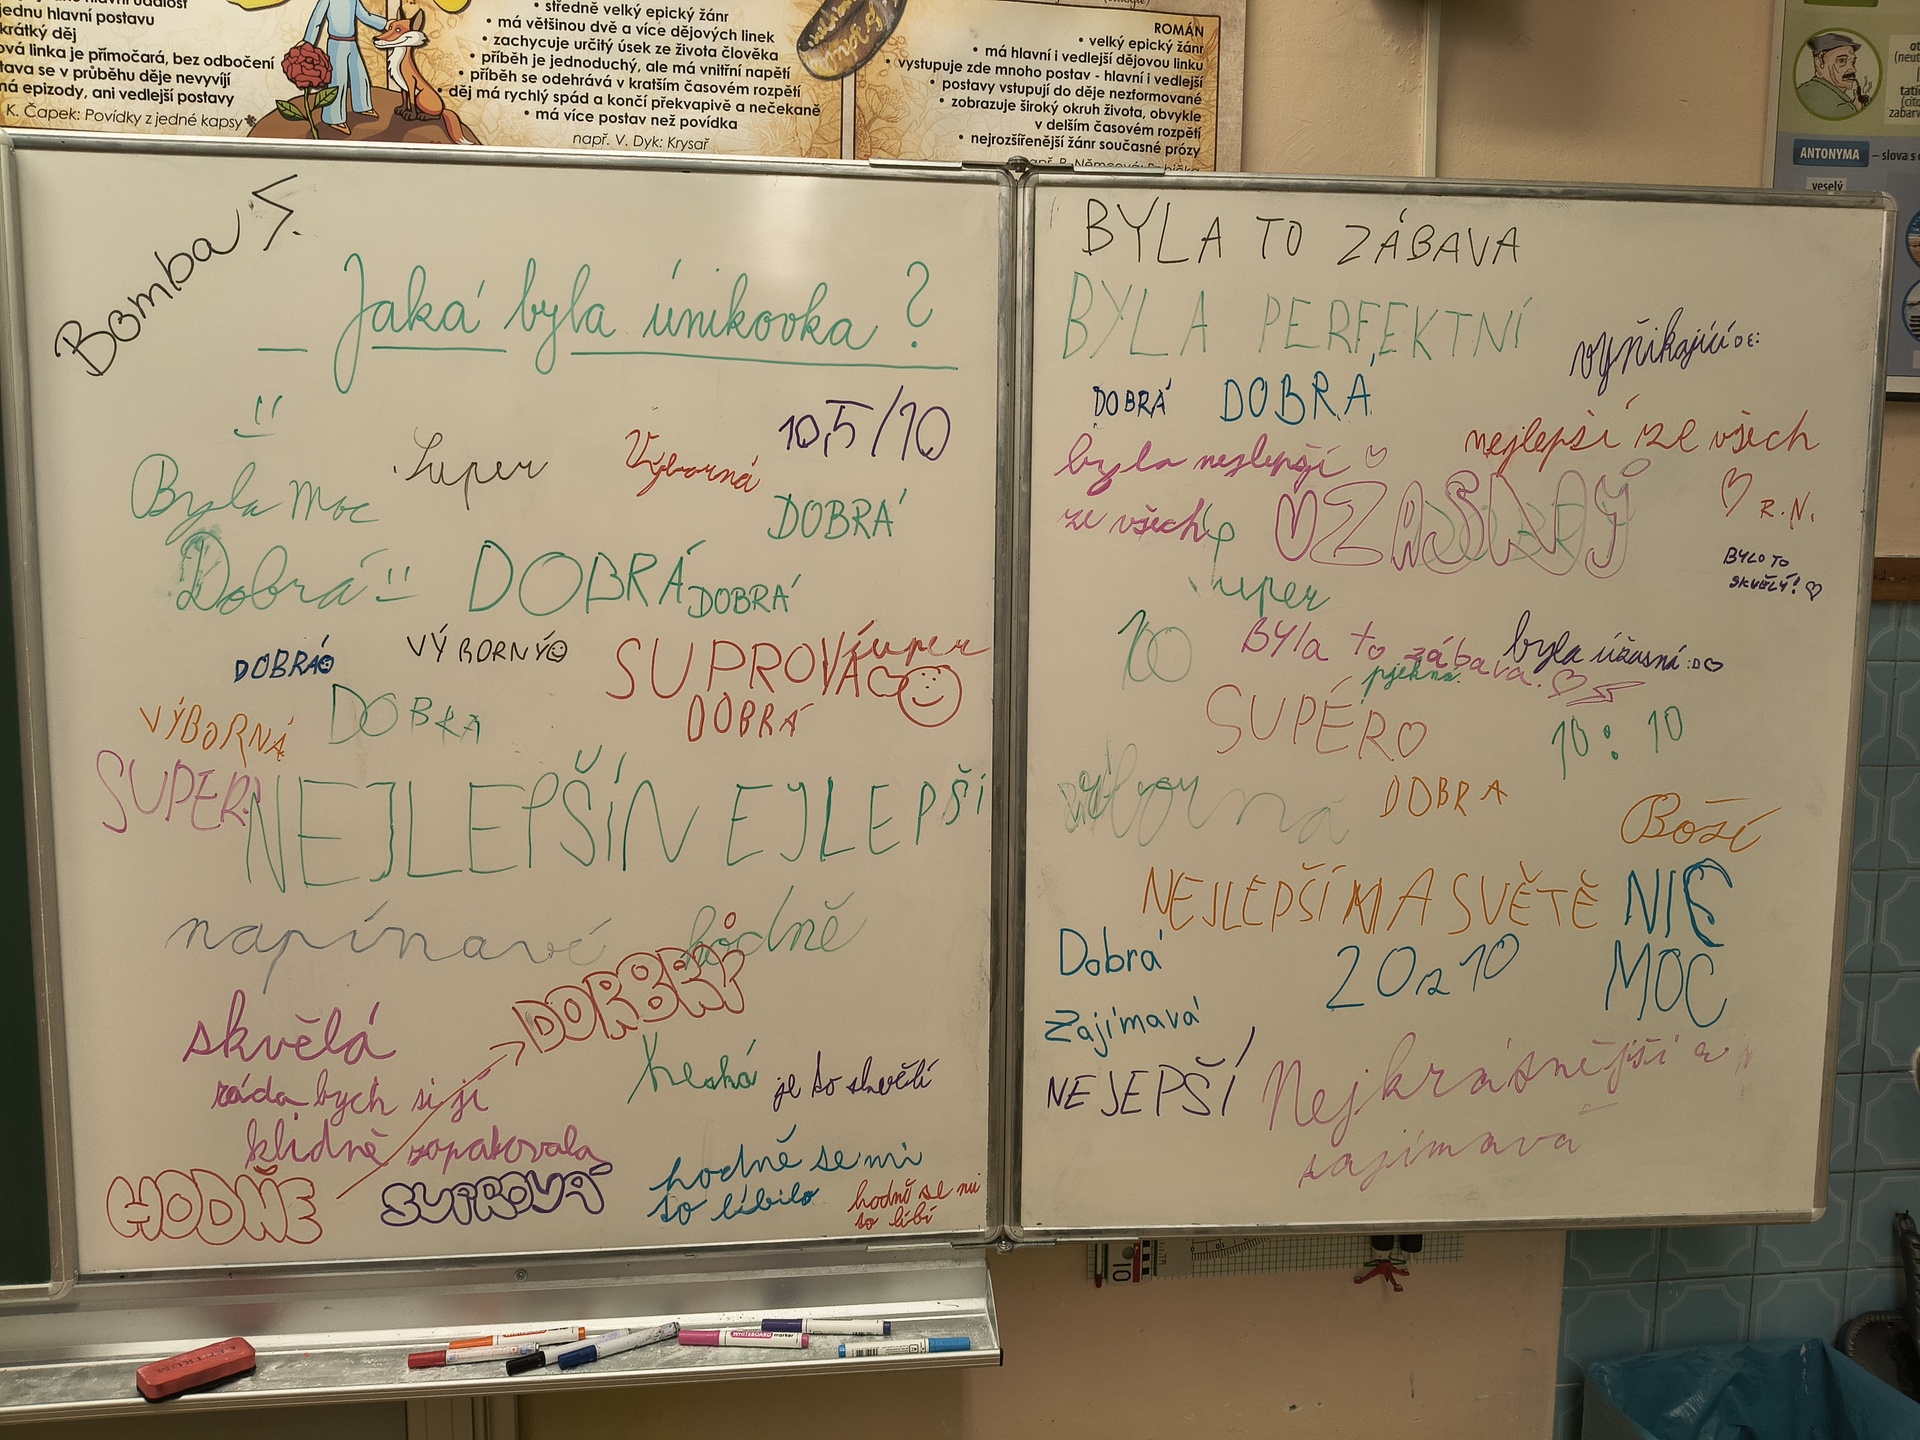 jednu hlavní postavu
krátký děj
ová linka je přímočará, bez odbočení
tava se v průběhu děje nevyvíjí
ná epizody, ani vedlejší postavy
K. Čapek: Povídky z jedné kapsy
• středně velký epický žánr
• má většinou dvě a více dějových linek
• zachycuje určitý úsek ze života člověka
• příběh je jednoduchý, ale má vnitřní napětí
• příběh se odehrává v kratším časovém rozpětí
• děj má rychlý spád a končí překvapivě a nečekaně
• má více postav než povídka
např. V. Dyk: Krysař
ROMÁN
• velký epický žánr
• má hlavní i vedlejší dějovou linku
• vystupuje zde mnoho postav - hlavní i vedlejší
• postavy vstupují do děje nezformované
• zobrazuje široký okruh života, obvykle
v delším časovém rozpětí
• nejrozšířenější žánr současné prózy
ANTONYMA – slova s
veselý
Bomba
Jaká byla únikovka?
10,5/10
Super
Výborná
Byla moc
Dobrá
DOBRÁ
DOBRÁ
DOBRÁ
DOBRÁ
VÝBORNÝ
SUPROVÁ
super
VÝBORNÁ
DOBRA
DOBRÁ
SUPER
NEJLEPŠÍ NEJLEPŠÍ
napínavé
hodně
DORBRÝ
skvělá
ráda bych si ji
klidně zopakovala
hezká
je to skvělí
HODŇE
SUPROVÁ
hodně se mi
to líbilo
hodně se mi
to líbí
BYLA TO ZÁBAVA
BYLA PERFEKTNÍ
vyňikajúcí
DOBRÁ
DOBRÁ
byla nejlepší
ze všech
nejlepší ze všech
R.N.
UZASNÝ
BYLO TO
SKVĚLÝ!
super
10
BYla to zábava
pjekna
byla úžasná :D
SUPÉRO
10:10
výborná
DOBRA
Boží
NEJLEPŠÍ NA SVĚTĚ
NIC
MOC
Dobrá
20z10
Zajímavá
NEJEPŠÍ
Nejkrásnější a
zajímavá
WHITEBOARD marker